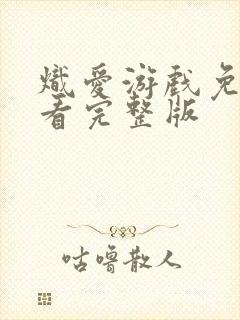 熾愛游戲免
看完整版
咕嚕散人